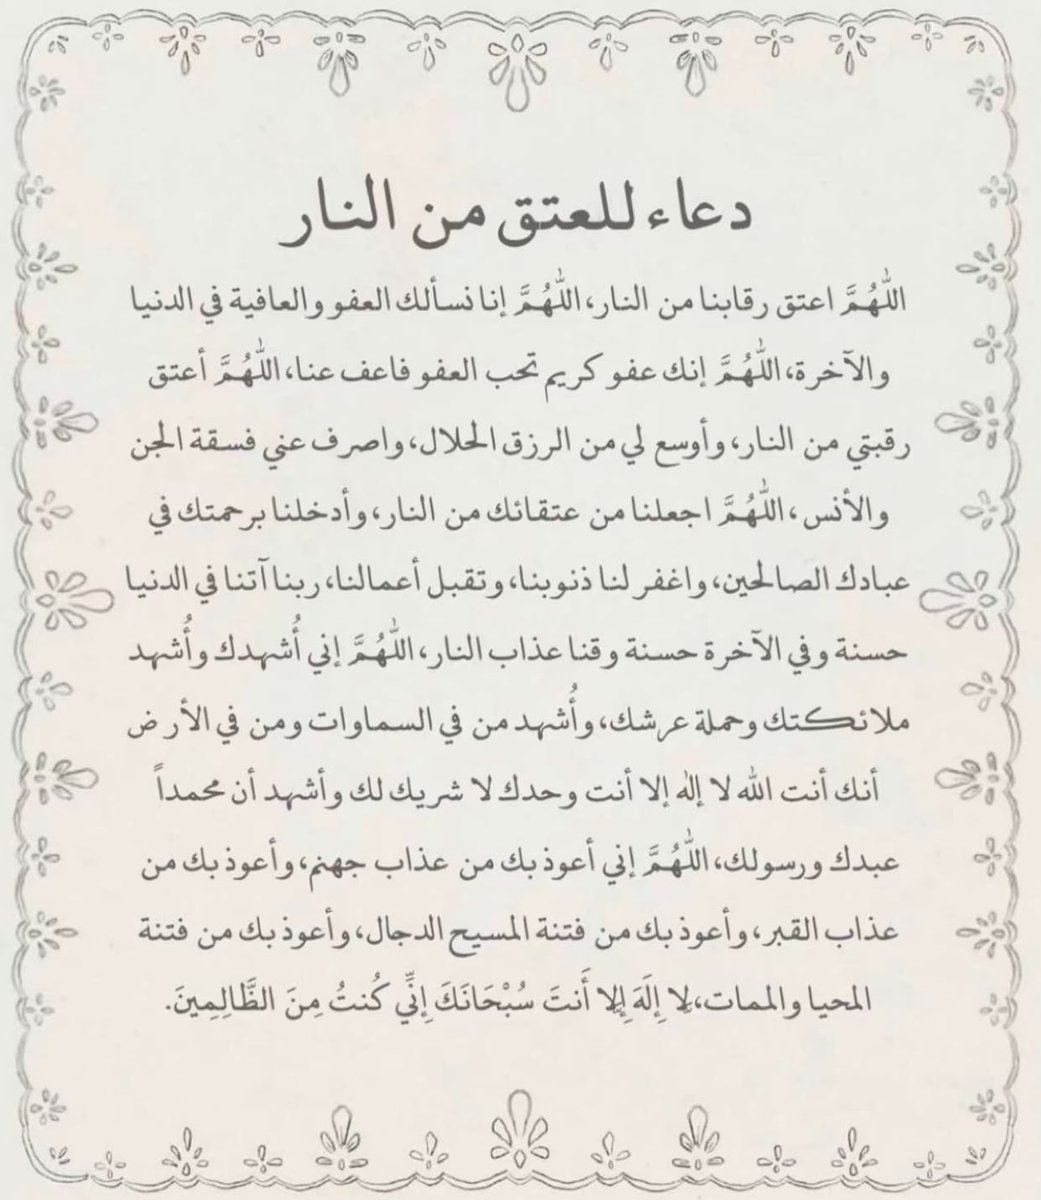 دعاء للعتق من النار
اللَّهُمَّ اعتق رقابنا من النار، اللَّهُمَّ إنا نسألك العفو والعافية في الدنيا
والآخرة، اللَّهُمَّ إنك عفو كريم تحب العفو فاعف عنا، اللَّهُمَّ أعتق
رقبتي من النار، وأوسع لي من الرزق الحلال، واصرف عني فسقة الجن
والأنس، اللَّهُمَّ اجعلنا من عتقائك من النار، وأدخلنا برحمتك في
عبادك الصالحين، واغفر لنا ذنوبنا، وتقبل أعمالنا، ربنا آتنا في الدنيا
حسنة وفي الآخرة حسنة وقنا عذاب النار، اللَّهُمَّ إني أُشهدك وأُشهد
ملائكتك وحملة عرشك، وأُشهد من في السماوات ومن في الأرض
أنك أنت الله لا إله إلا أنت وحدك لا شريك لك وأشهد أن محمداً
عبدك ورسولك، اللَّهُمَّ إني أعوذ بك من عذاب جهنم، وأعوذ بك من
عذاب القبر، وأعوذ بك من فتنة المسيح الدجال، وأعوذ بك من فتنة
المحيا والممات، لا إِلَهَ إِلا أَنتَ سُبْحَانَكَ إِنِّي كُنتُ مِنَ الظَّالِمِينَ.